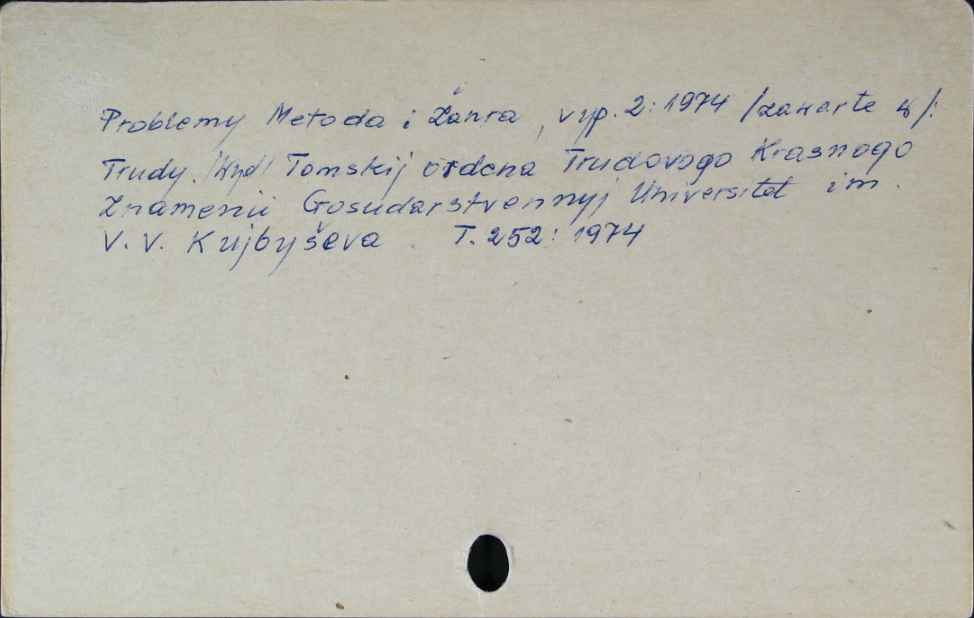 Problemy Metoda i Žanra, vyp. 2: 1974 /zawarte w/:
Trudy. /Wyd/ Tomskij ordena Trudovogo Krasnogo
Znamenii Gosudarstvennyj Universitet im.
V. V. Kujbyševa. T. 252: 1974